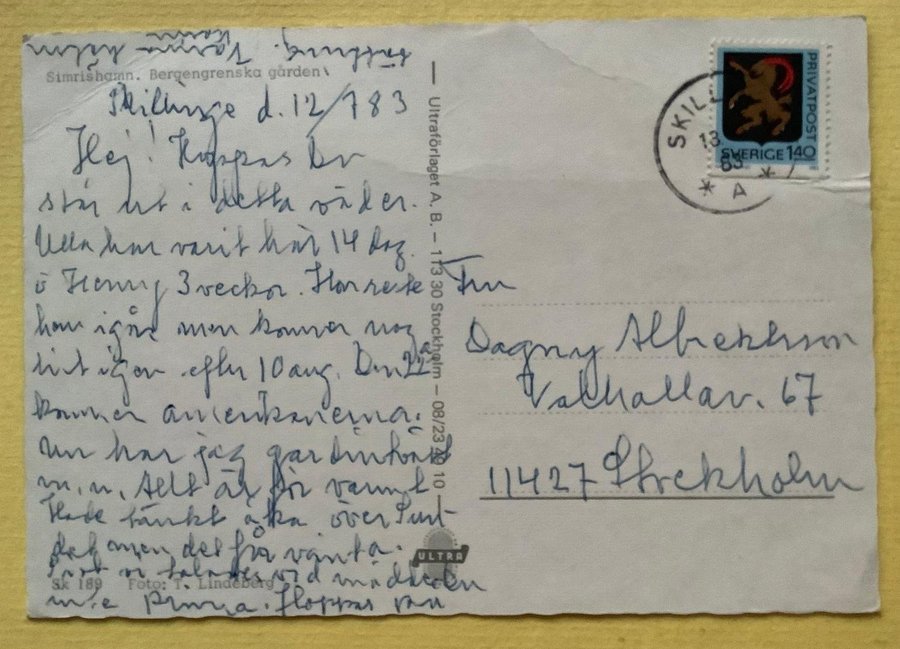 Simrishamn. Bergengrenska gården
Skillinge d. 12/7 83
Hej! Hoppas Du
står ut i detta väder.
Ulla har varit här 14 dag.
o Henny 3 veckor. Hon reste
hem igår men kommer nog
hit igen efter 10 aug. Den 22
kommer amerikanerna.
Nu har jag gardintvätt
m.m. Allt är för varmt
Hade tänkt åka över
men det får vänta.
vi talades vid
Hoppas
Varma
Ultraförlaget A. B. – 113 30 Stockholm – 08/23 10
Sk 189 Foto: T. Lindeberg
ULTRA
SKILL
13
83
A
PRIVATPOST
SVERIGE 140
Fru
Dagny Albrektson
Valhallav. 67
11427 Stockholm